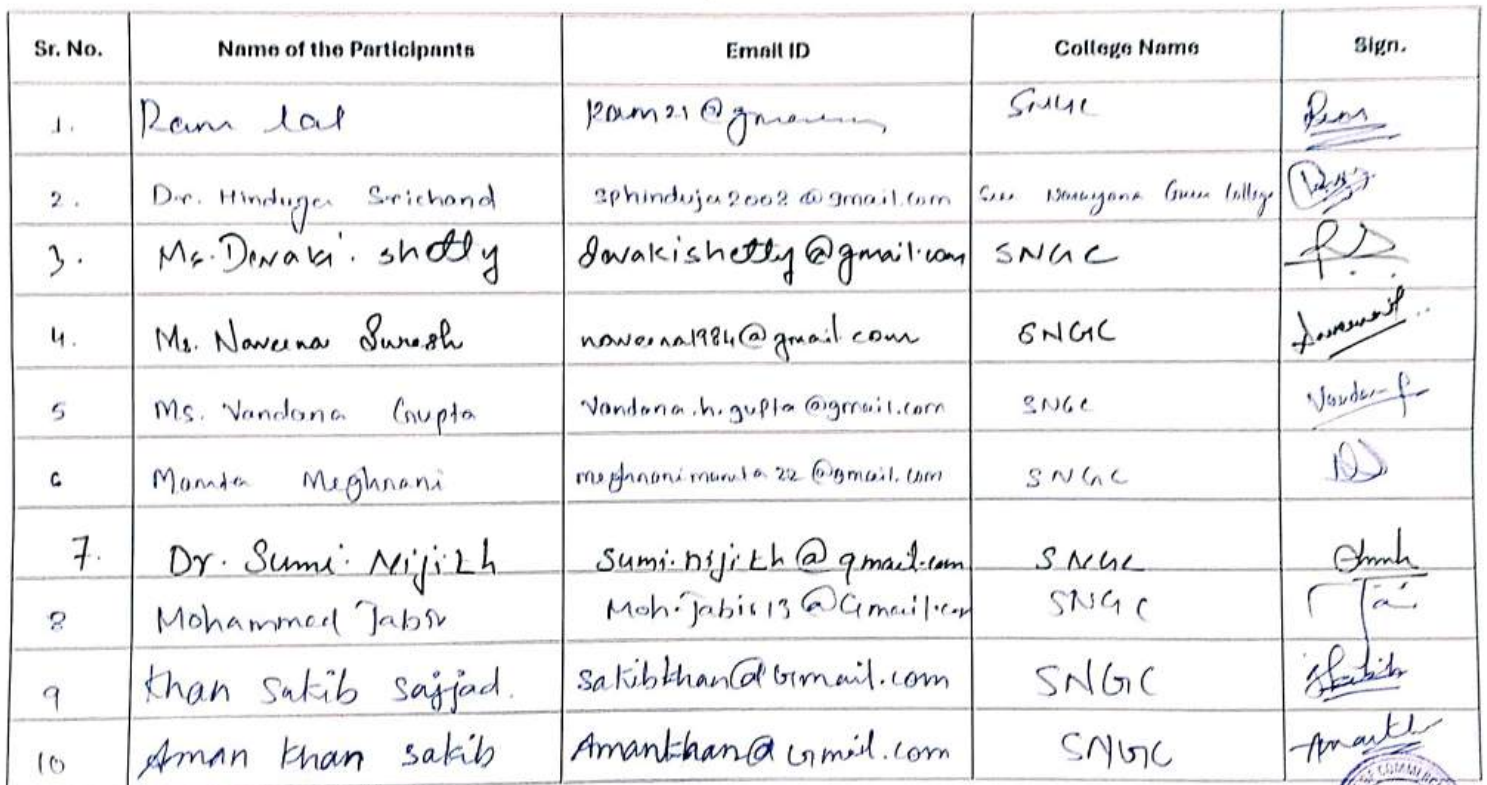 Sr. No. Name of the Participants Email ID College Name Sign.
1. Ram lal SNGC
2. Dr. Hinduja Srichand sphinduja2002@gmail.com Sree Narayana Guru College
3. Ms. Devaki. shetty devakishetty@gmail.com SNGC
4. Ms. Naveena Suresh naveena1984@gmail.com SNGC
5 Ms. Vandana Gupta Vandana.h.gupta@gmail.com SNGC
6 Mamta Meghnani meghnanimamta22@gmail.com SNGC
7. Dr. Sumi. Nijith Sumi.nijith@gmail.com SNGC
8 Mohammed Jabir Moh.Jabir13@Gmail.com SNGC
9 Khan Sakib Sajjad. Sakibkhan@Gmail.com SNGC
10 Aman Khan Sakib Amankhan@Gmail.com SNGC
OF COMMERCE